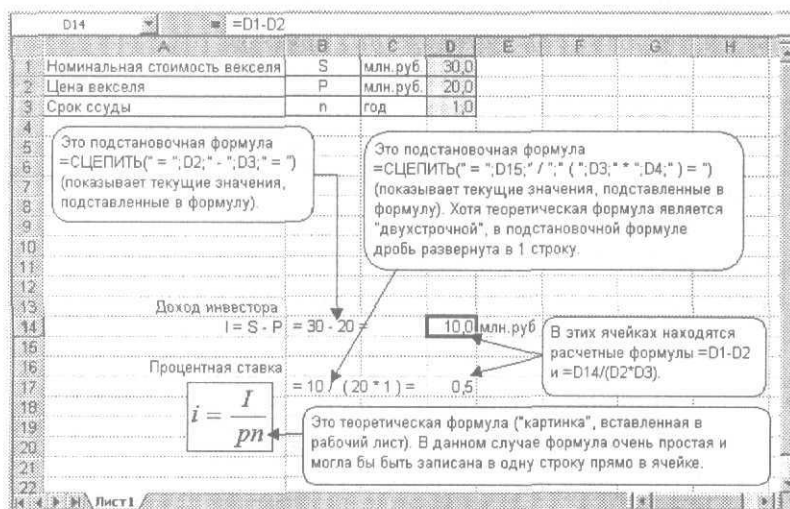 D14 = =D1-D2
A B C D E F G H
1 Номинальная стоимость векселя S млн.руб 30,0
2 Цена векселя P млн.руб. 20,0
3 Срок ссуды n год 1,0
4
5
6
7
8
9
10
11
12
13
14
15
16
17
18
19
20
21
22
Это подстановочная формула
=СЦЕПИТЬ(" = ";D2;" - ";D3;" = ")
(показывает текущие значения,
подставленные в формулу).
Это подстановочная формула
=СЦЕПИТЬ(" = ";D15;" / ";" ( ";D3;" * ";D4;" ) = ")
(показывает текущие значения, подставленные в
формулу). Хотя теоретическая формула является
"двухстрочной", в подстановочной формуле
дробь развернута в 1 строку.
Доход инвестора
I = S - P = 30 - 20 = 10,0 млн.руб
В этих ячейках находятся
расчетные формулы =D1-D2
и =D14/(D2*D3).
Процентная ставка
= 10 / ( 20 * 1 ) = 0,5
i = I
pn
Это теоретическая формула ("картинка", вставленная в
рабочий лист). В данном случае формула очень простая и
могла бы быть записана в одну строку прямо в ячейке.
Лист1